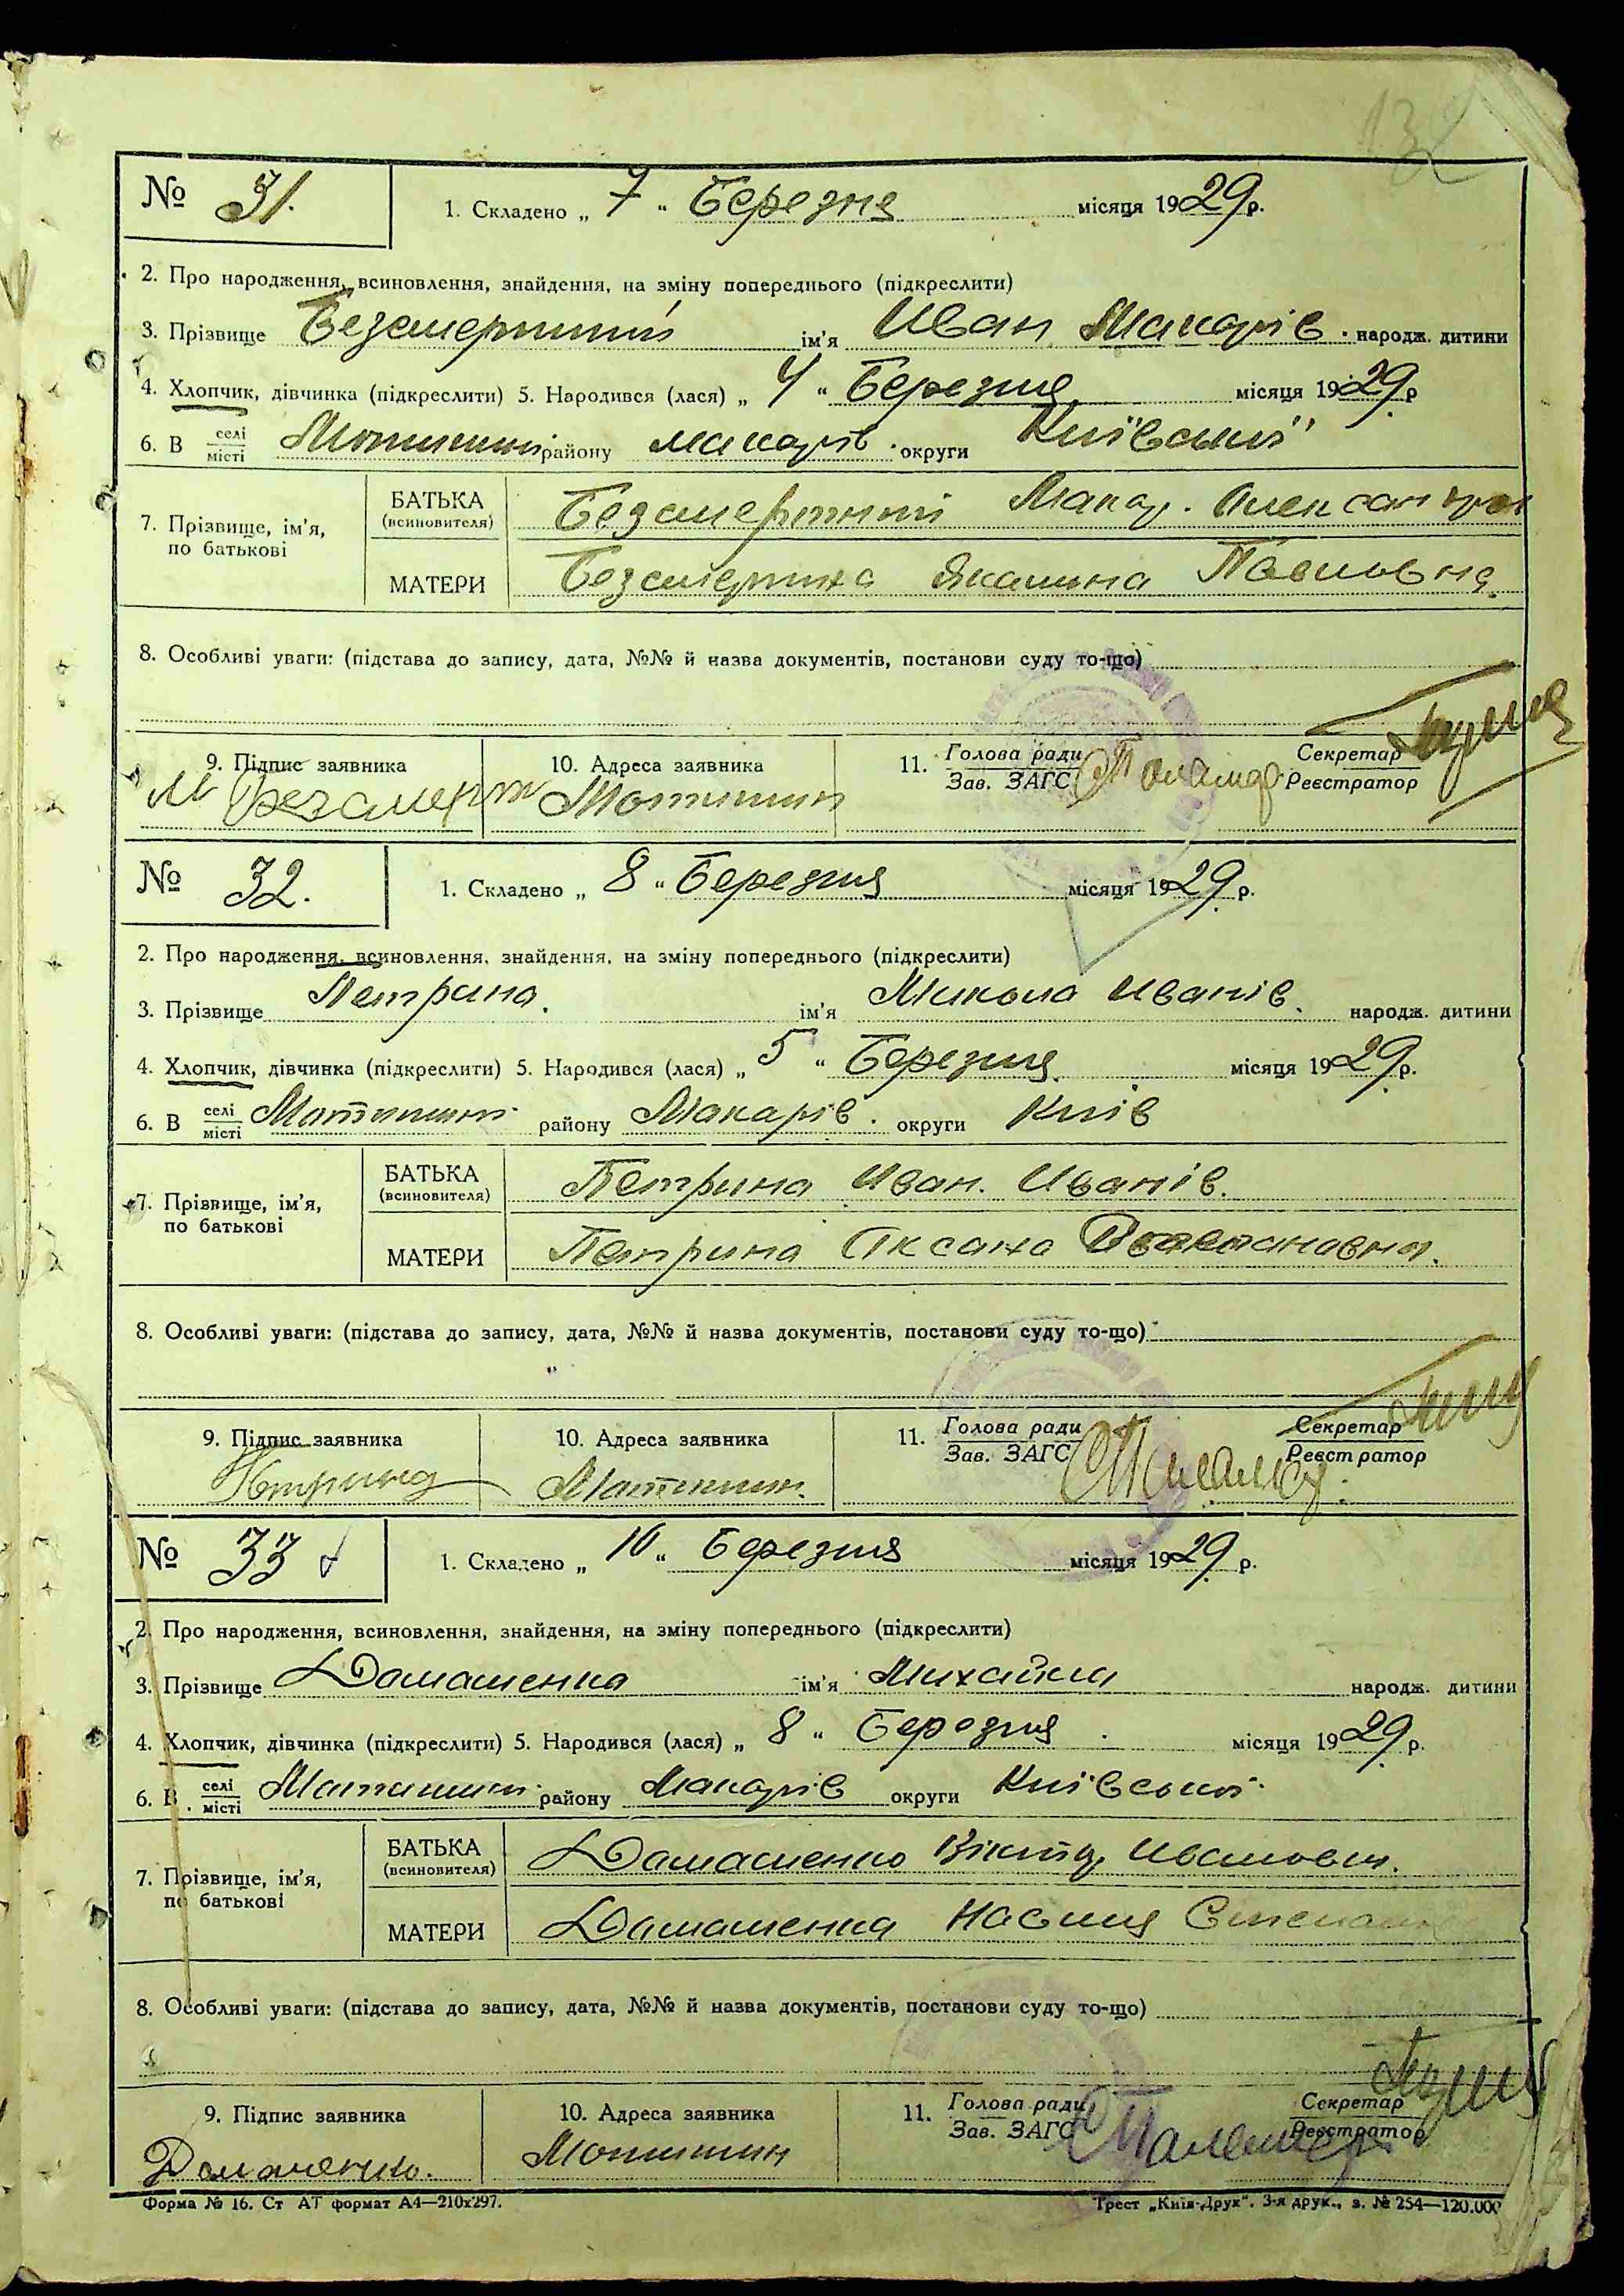 132
№ 31.
1. Складено „ 7 " Березня місяця 1929 р.
2. Про народження, всиновлення, знайдення, на зміну попереднього (підкреслити)
3. Прізвище Безсмертний ім'я Иван Макарів. народж. дитини
4. Хлопчик, дівчинка (підкреслити) 5. Народився (лася) „ 4 " Березня місяця 1929 р
6. В селі місті Мотижин району Макарів. округи Київської
7. Прізвище, ім'я, по батькові
БАТЬКА (всиновителя) Безсмертний Макар.
МАТЕРИ Безсмертна Павловна.
8. Особливі уваги: (підстава до запису, дата, №№ й назва документів, постанови суду то-що)
9. Підпис заявника М Безсмерт
10. Адреса заявника Мотижин
11. Голова ради Зав. ЗАГС Секретар Реєстратор
№ 32.
1. Складено „ 8 " Березня місяця 1929 р.
2. Про народження, всиновлення, знайдення, на зміну попереднього (підкреслити)
3. Прізвище Петрина. ім'я Микола Иванів. народж. дитини
4. Хлопчик, дівчинка (підкреслити) 5. Народився (лася) „ 5 " Березня. місяця 1929 р.
6. В селі місті Мотижин району Макарів. округи Київ
7. Прізвище, ім'я, по батькові
БАТЬКА (всиновителя) Петрина Иван. Иванів.
МАТЕРИ Петрина Оксана
8. Особливі уваги: (підстава до запису, дата, №№ й назва документів, постанови суду то-що)
"
9. Підпис заявника Петрина
10. Адреса заявника Мотижин.
11. Голова ради Зав. ЗАГС Секретар Реєстратор
№ 33
1. Складено „ 10 " Березня місяця 1929 р.
2. Про народження, всиновлення, знайдення, на зміну попереднього (підкреслити)
3. Прізвище Домашенко ім'я Михайло народж. дитини
4. Хлопчик, дівчинка (підкреслити) 5. Народився (лася) „ 8 " Березня місяця 1929 р.
6. В селі місті Мотижин району Макарів округи Київської
7. Прізвище, ім'я, по батькові
БАТЬКА (всиновителя) Домашенко Віктор Иванович.
МАТЕРИ Домашенко Настя
8. Особливі уваги: (підстава до запису, дата, №№ й назва документів, постанови суду то-що)
9. Підпис заявника Домашенко.
10. Адреса заявника Мотижин
11. Голова ради Зав. ЗАГС Секретар Реєстратор
Форма № 16. Ст АТ формат А4—210х297.
Трест „Київ-Друк". 3-я друк., з. № 254—120.000